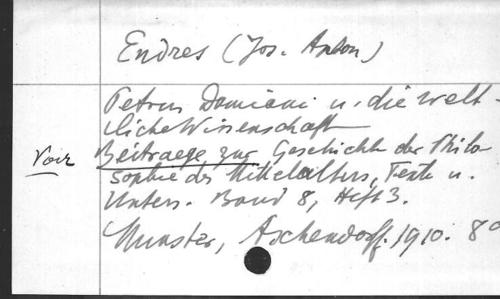 Endres (Jos. Anton)
Petrus Damiani u. die welt-
liche Wissenschaft
Voir Beitraege zur Geschichte der Philo
sophie des Mittelalters, Texte u.
Unters. Band 8, Heft 3.
Munster, Aschendorff. 1910. 8°